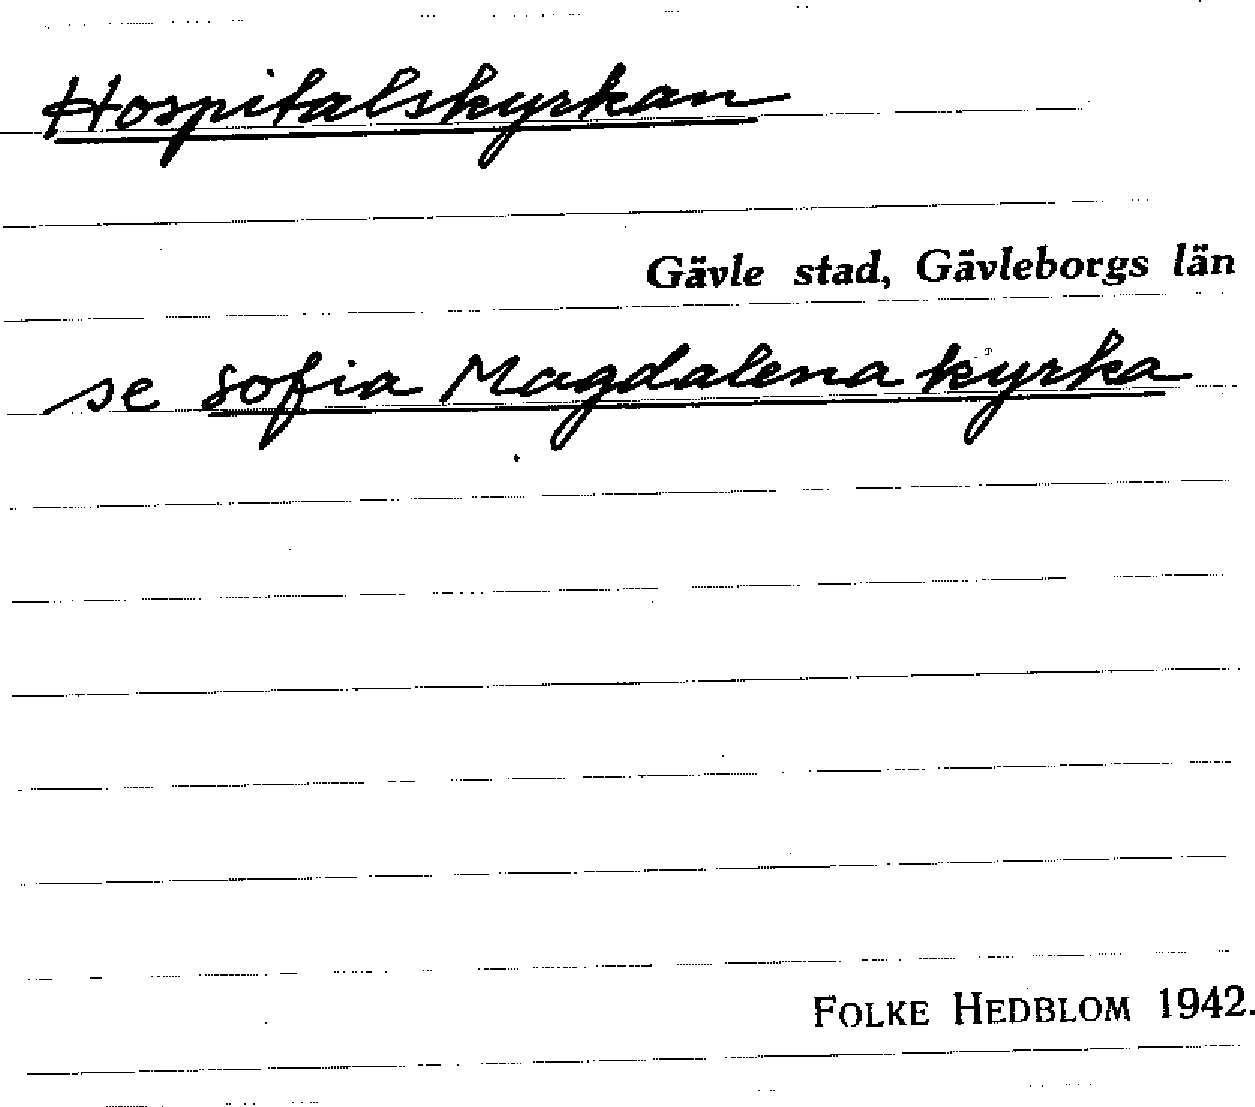 Hospitalskyrkan
Gävle stad, Gävleborgs län
se Sofia Magdalena kyrka
FOLKE HEDBLOM 1942.